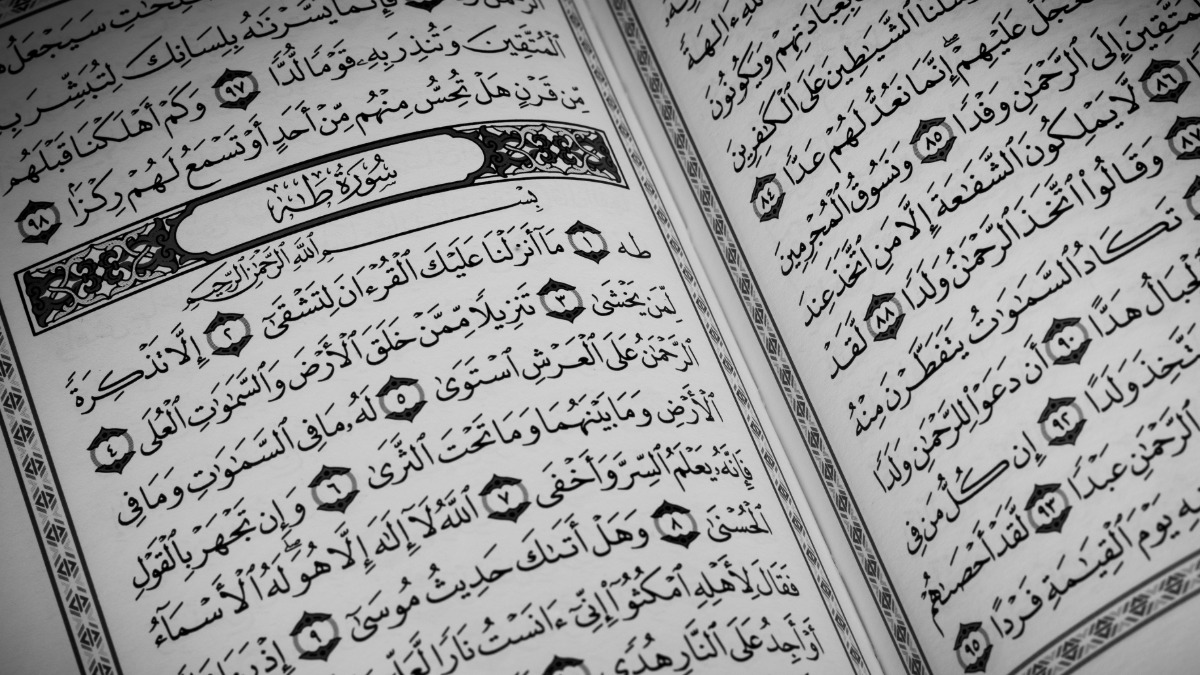 ءَالِهَةً
بِعِبَادَتِهِمْ وَيَكُونُونَ
ٱلشَّيَٰطِينَ عَلَى ٱلْكَٰفِرِينَ
تَعْجَلْ عَلَيْهِمْ ۖ إِنَّمَا نَعُدُّ لَهُمْ عَدًّا ٨٤
ٱلْمُتَّقِينَ إِلَى ٱلرَّحْمَٰنِ وَفْدًا ٨٥ وَنَسُوقُ ٱلْمُجْرِمِينَ
٨٦ لَّا يَمْلِكُونَ ٱلشَّفَٰعَةَ إِلَّا مَنِ ٱتَّخَذَ عِندَ
٨٧ وَقَالُوا۟ ٱتَّخَذَ ٱلرَّحْمَٰنُ وَلَدًا ٨٨ لَّقَدْ
تَكَادُ ٱلسَّمَٰوَٰتُ يَتَفَطَّرْنَ مِنْهُ
ٱلْجِبَالُ هَدًّا ٩٠ أَن دَعَوْا۟ لِلرَّحْمَٰنِ وَلَدًا
يَتَّخِذَ وَلَدًا ٩٢ إِن كُلُّ مَن فِى
ٱلرَّحْمَٰنِ عَبْدًا ٩٣ لَّقَدْ أَحْصَىٰهُمْ
يَوْمَ ٱلْقِيَٰمَةِ فَرْدًا ٩٥
سَيَجْعَلُ
فَإِنَّمَا يَسَّرْنَٰهُ بِلِسَانِكَ لِتُبَشِّرَ بِهِ
ٱلْمُتَّقِينَ وَتُنذِرَ بِهِۦ قَوْمًا لُّدًّا ٩٧ وَكَمْ أَهْلَكْنَا قَبْلَهُم
مِّن قَرْنٍ هَلْ تُحِسُّ مِنْهُم مِّنْ أَحَدٍ أَوْ تَسْمَعُ لَهُمْ رِكْزًۢا ٩٨
سُورَةُ طه
بِسْمِ ٱللَّهِ ٱلرَّحْمَٰنِ ٱلرَّحِيمِ
طه ١ مَآ أَنزَلْنَا عَلَيْكَ ٱلْقُرْءَانَ لِتَشْقَىٰٓ ٢ إِلَّا تَذْكِرَةً
لِّمَن يَخْشَىٰ ٣ تَنزِيلًا مِّمَّنْ خَلَقَ ٱلْأَرْضَ وَٱلسَّمَٰوَٰتِ ٱلْعُلَى ٤
ٱلرَّحْمَٰنُ عَلَى ٱلْعَرْشِ ٱسْتَوَىٰ ٥ لَهُۥ مَا فِى ٱلسَّمَٰوَٰتِ وَمَا فِى
ٱلْأَرْضِ وَمَا بَيْنَهُمَا وَمَا تَحْتَ ٱلثَّرَىٰ ٦ وَإِن تَجْهَرْ بِٱلْقَوْلِ
فَإِنَّهُۥ يَعْلَمُ ٱلسِّرَّ وَأَخْفَى ٧ ٱللَّهُ لَآ إِلَٰهَ إِلَّا هُوَ ۖ لَهُ ٱلْأَسْمَآءُ
ٱلْحُسْنَىٰ ٨ وَهَلْ أَتَىٰكَ حَدِيثُ مُوسَىٰٓ ٩ إِذْ رَءَا نَارًا
فَقَالَ لِأَهْلِهِ ٱمْكُثُوٓا۟ إِنِّىٓ ءَانَسْتُ نَارًا لَّعَلِّىٓ
أَوْ أَجِدُ عَلَى ٱلنَّارِ هُدًى